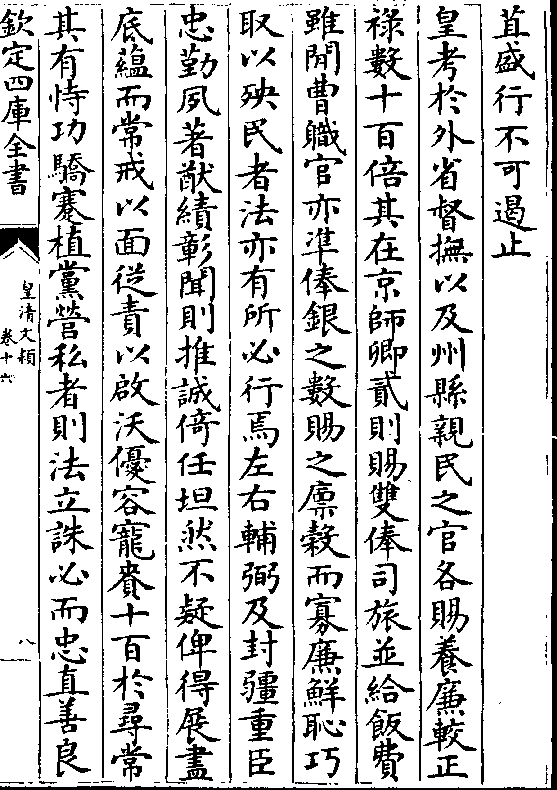 苴盛行不可遏止
皇考於外省督撫以及州縣親民之官各賜養廉較正
祿數十百倍其在京師卿貳則賜雙俸司旅並給飯費
雖閒曹職官亦準俸銀之數賜之廪榖而寡廉鮮恥巧
取以殃民者法亦有所必行焉左右輔弼及封疆重臣
忠勤夙著猷績彰聞則推誠倚任坦然不疑俾得展盡
底蘊而常戒以面從責以啟沃優容寵賚十百於尋常
其有恃功驕蹇植黨營私者則法立誅必而忠直善良
欽定四庫全書
皇清文頴
卷十六
八